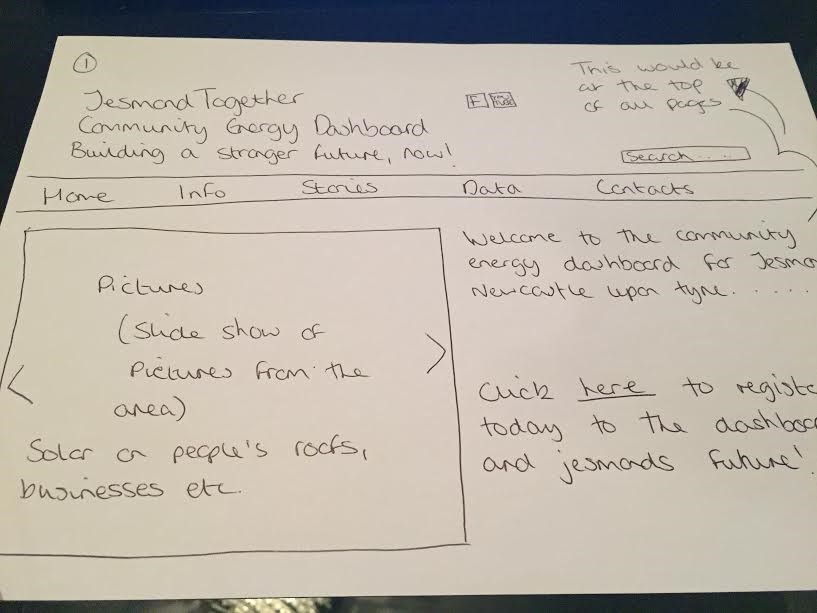 1
JesmondTogether
Community Energy Dashboard
Building a stronger future, now!
F You Tube
This would be
at the top
of all pages
Search....
Home Info Stories Data Contacts
Pictures
(Slide show of
Pictures from the
area)
Solar on people's roofs,
businesses etc.
Welcome to the community
energy dashboard for Jesmo
Newcastle upon tyne......
Click here to registe
today to the dashboa
and jesmads future!